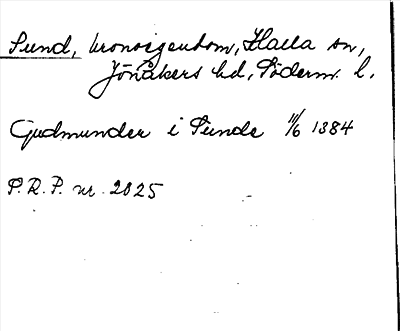 Sund, kronoegendom, Halla sn,
Jönåkers hd, Söderm. l.
Gudmunder i Sunde 11/6 1384
S.R.P. nr 2025